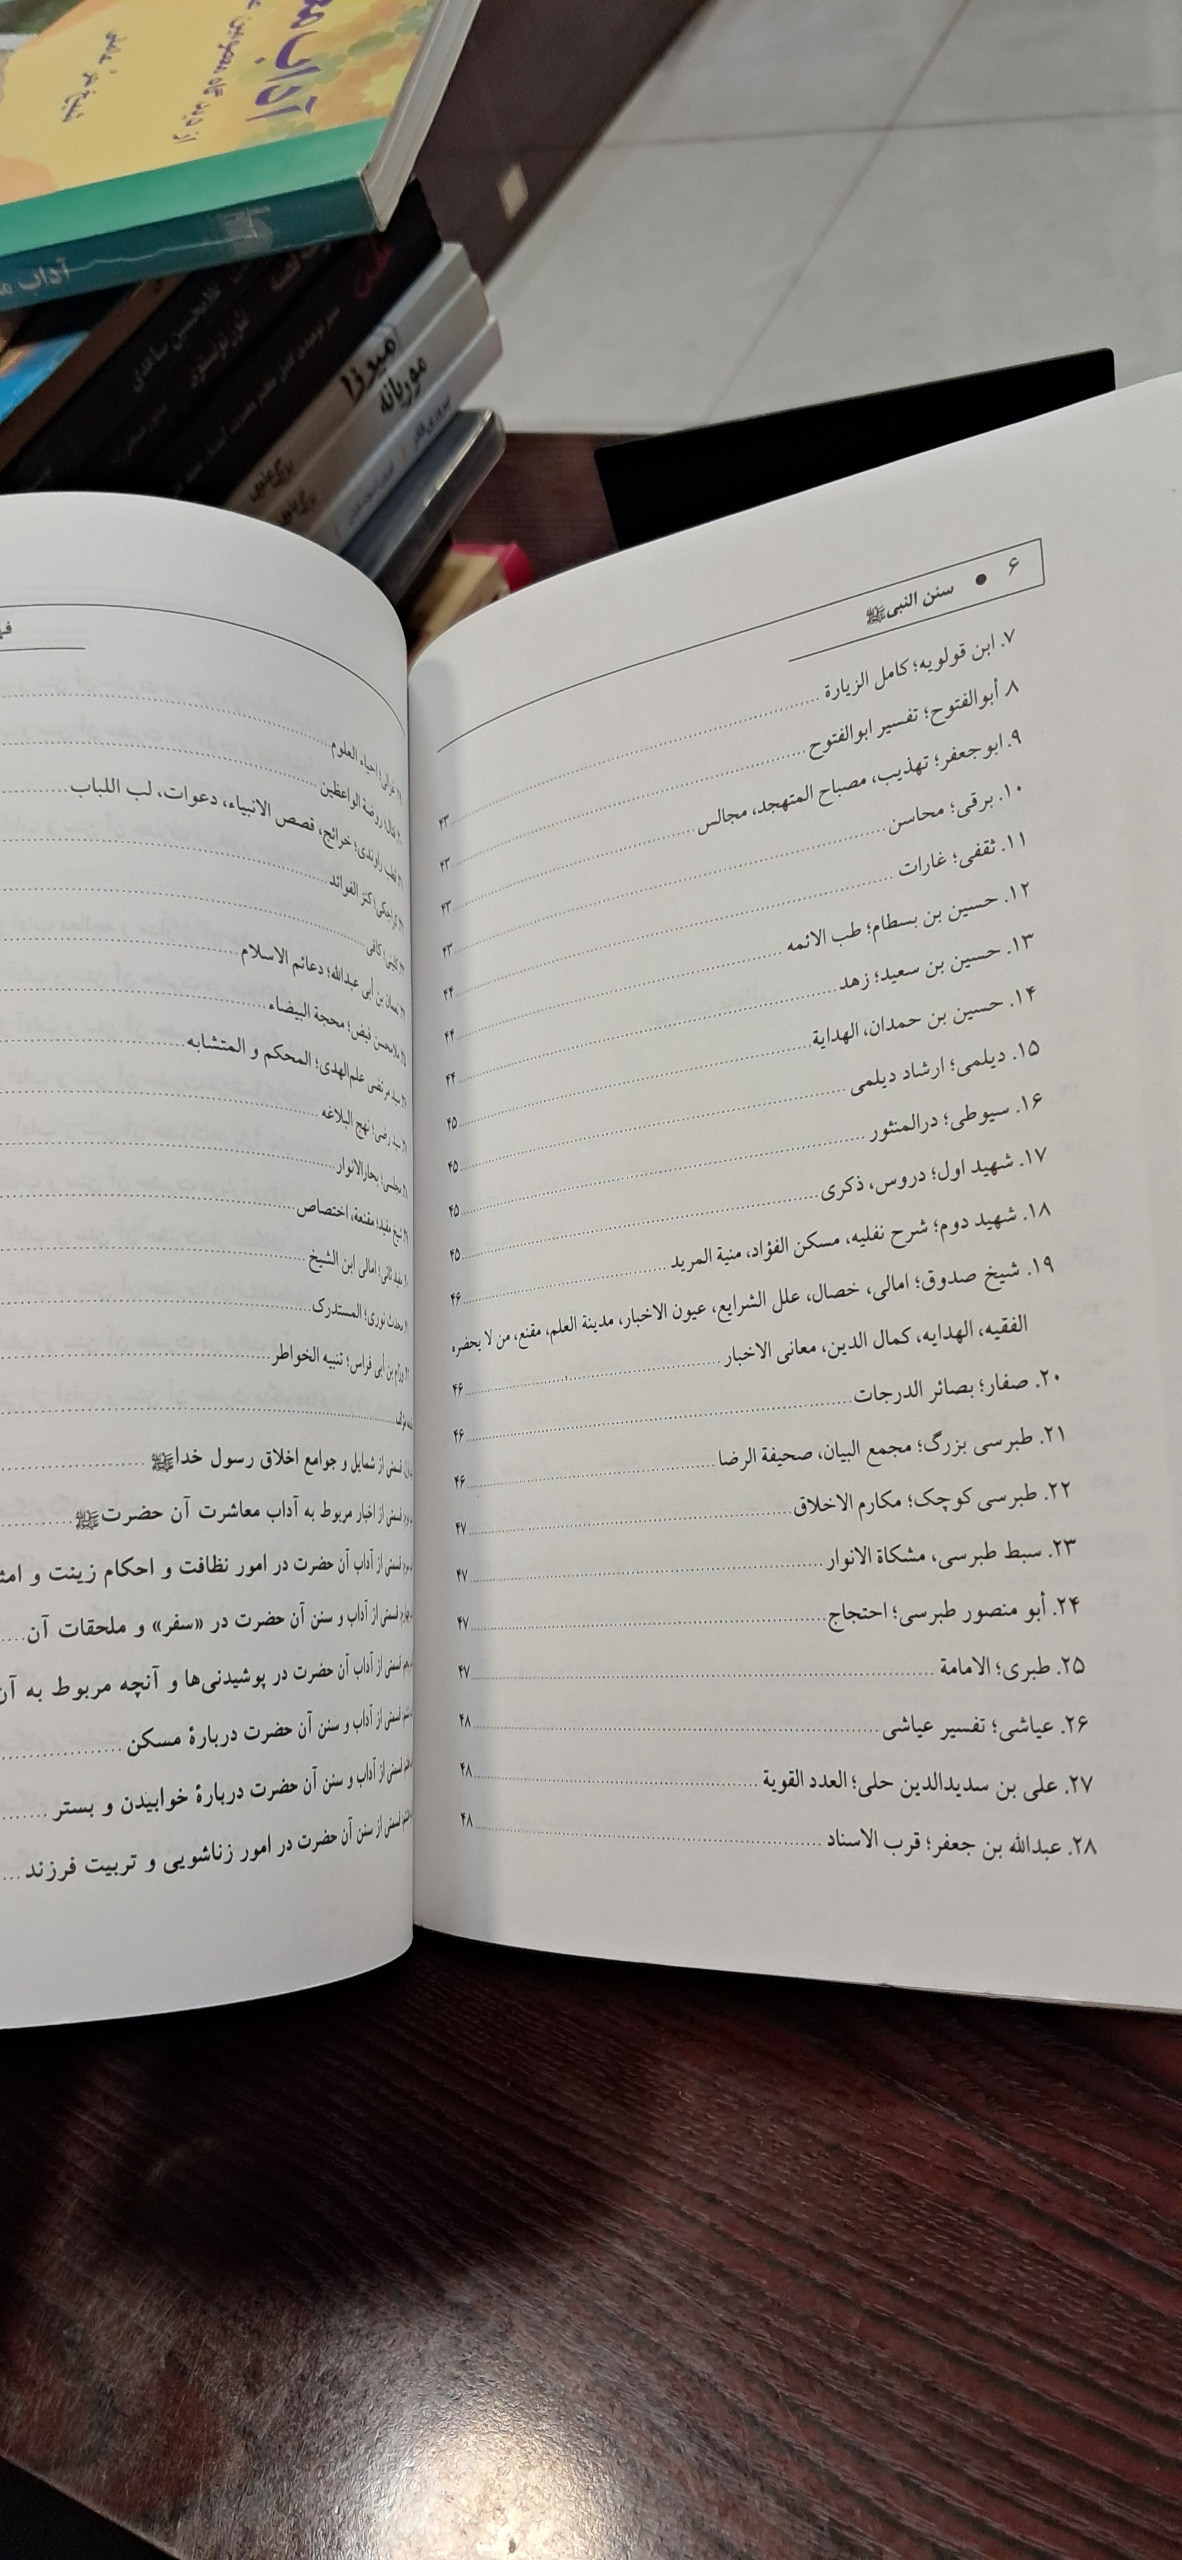 ۶ ● سنن النبی ﷺ
۷. ابن قولویه؛ کامل الزیارة ........ ۴۳
۸. أبوالفتوح؛ تفسیر ابوالفتوح ........ ۴۳
۹. ابوجعفر؛ تهذیب، مصباح المتهجد، مجالس ........ ۴۳
۱۰. برقی؛ محاسن ........ ۴۳
۱۱. ثقفی؛ غارات ........ ۴۴
۱۲. حسین بن بسطام؛ طب الائمه ........ ۴۴
۱۳. حسین بن سعید؛ زهد ........ ۴۴
۱۴. حسین بن حمدان، الهدایة ........ ۴۵
۱۵. دیلمی؛ ارشاد دیلمی ........ ۴۵
۱۶. سیوطی؛ درالمنثور ........ ۴۵
۱۷. شهید اول؛ دروس، ذکری ........ ۴۵
۱۸. شهید دوم؛ شرح نفلیه، مسکن الفؤاد، منیة المرید ........ ۴۶
۱۹. شیخ صدوق؛ امالی، خصال، علل الشرایع، عیون الاخبار، مدینة العلم، مقنع، من لا یحضره
الفقیه، الهدایه، کمال الدین، معانی الاخبار ........ ۴۶
۲۰. صفار؛ بصائر الدرجات ........ ۴۶
۲۱. طبرسی بزرگ؛ مجمع البیان، صحیفة الرضا ........ ۴۶
۲۲. طبرسی کوچک؛ مکارم الاخلاق ........ ۴۷
۲۳. سبط طبرسی، مشکاة الانوار ........ ۴۷
۲۴. أبو منصور طبرسی؛ احتجاج ........ ۴۷
۲۵. طبری؛ الامامة ........ ۴۷
۲۶. عیاشی؛ تفسیر عیاشی ........ ۴۸
۲۷. علی بن سدیدالدین حلی؛ العدد القویة ........ ۴۸
۲۸. عبدالله بن جعفر؛ قرب الاسناد ........ ۴۸
غزالی؛ احیاء العلوم
روضة الواعظین
قطب راوندی؛ خرائج، قصص الانبیاء، دعوات، لب اللباب
کراجکی؛ کنز الفوائد
کلینی؛ کافی
نعمان بن أبی عبدالله؛ دعائم الاسلام
ملامحسن فیض؛ محجة البیضاء
سید مرتضی علم‌الهدی؛ المحکم و المتشابه
سید رضی؛ نهج البلاغه
مجلسی؛ بحارالانوار
شیخ مفید؛ مقنعة، اختصاص
مفید ثانی؛ امالی ابن الشیخ
محدث نوری؛ المستدرک
ورّام بن أبی فراس؛ تنبیه الخواطر
قسمتی از شمایل و جوامع اخلاق رسول خدا ﷺ
قسمتی از اخبار مربوط به آداب معاشرت آن حضرت ﷺ
قسمتی از آداب آن حضرت در امور نظافت و احکام زینت و
قسمتی از آداب و سنن آن حضرت در «سفر» و ملحقات آن
قسمتی از آداب آن حضرت در پوشیدنی‌ها و آنچه مربوط به
قسمتی از آداب و سنن آن حضرت دربارهٔ مسکن
قسمتی از آداب و سنن آن حضرت دربارهٔ خوابیدن و بستر
قسمتی از سنن آن حضرت در امور زناشویی و تربیت فرزند
آداب
آداب
میرزا
موریانه
بزرگ علوی